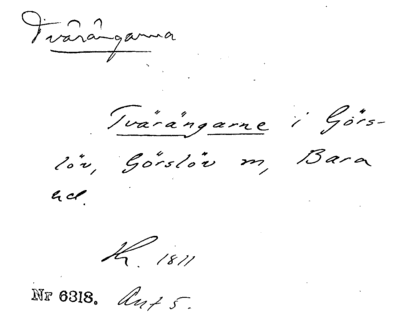 Tvärängarna
Tvärängarne i Görs-
löv, Görslöv sn, Bara
hd.
Kh. 1811
Nr 6318. Ant 5.